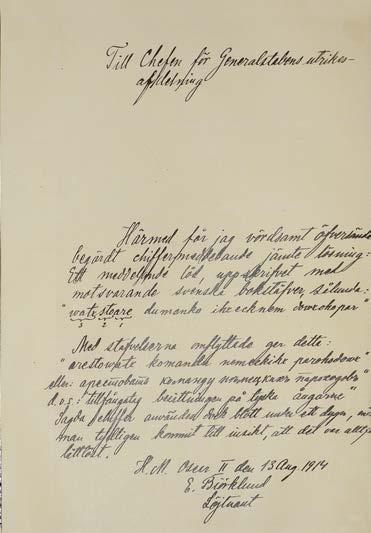 Till Chefen för Generalstabens utrikes-
afdelning
Härmed får jag vördsamt öfversända
begärdt chiffermeddelande jämte lösning:
Ett meddelande löd, uppskrifvet med
motsvarande svenska bokstäfver, sålunda:
"watosteare dumanko ihkecknem dowoohopar"
3 2 1
Med stafvelserna omflyttade ger detta:
"arestowate komandu nemeckihk porohodowo"
eller: арестовать команду пароходовъ"
d.v.s.: tillfångatag besättningen på tyska ångarne"
Sagda chiffer användes dock blott under ett dygn,
man tydligen kommit till insikt, att det var
lättlöst.
H.M. Oscar II den 15 Aug. 1914
E. Björklund
Löjtnant